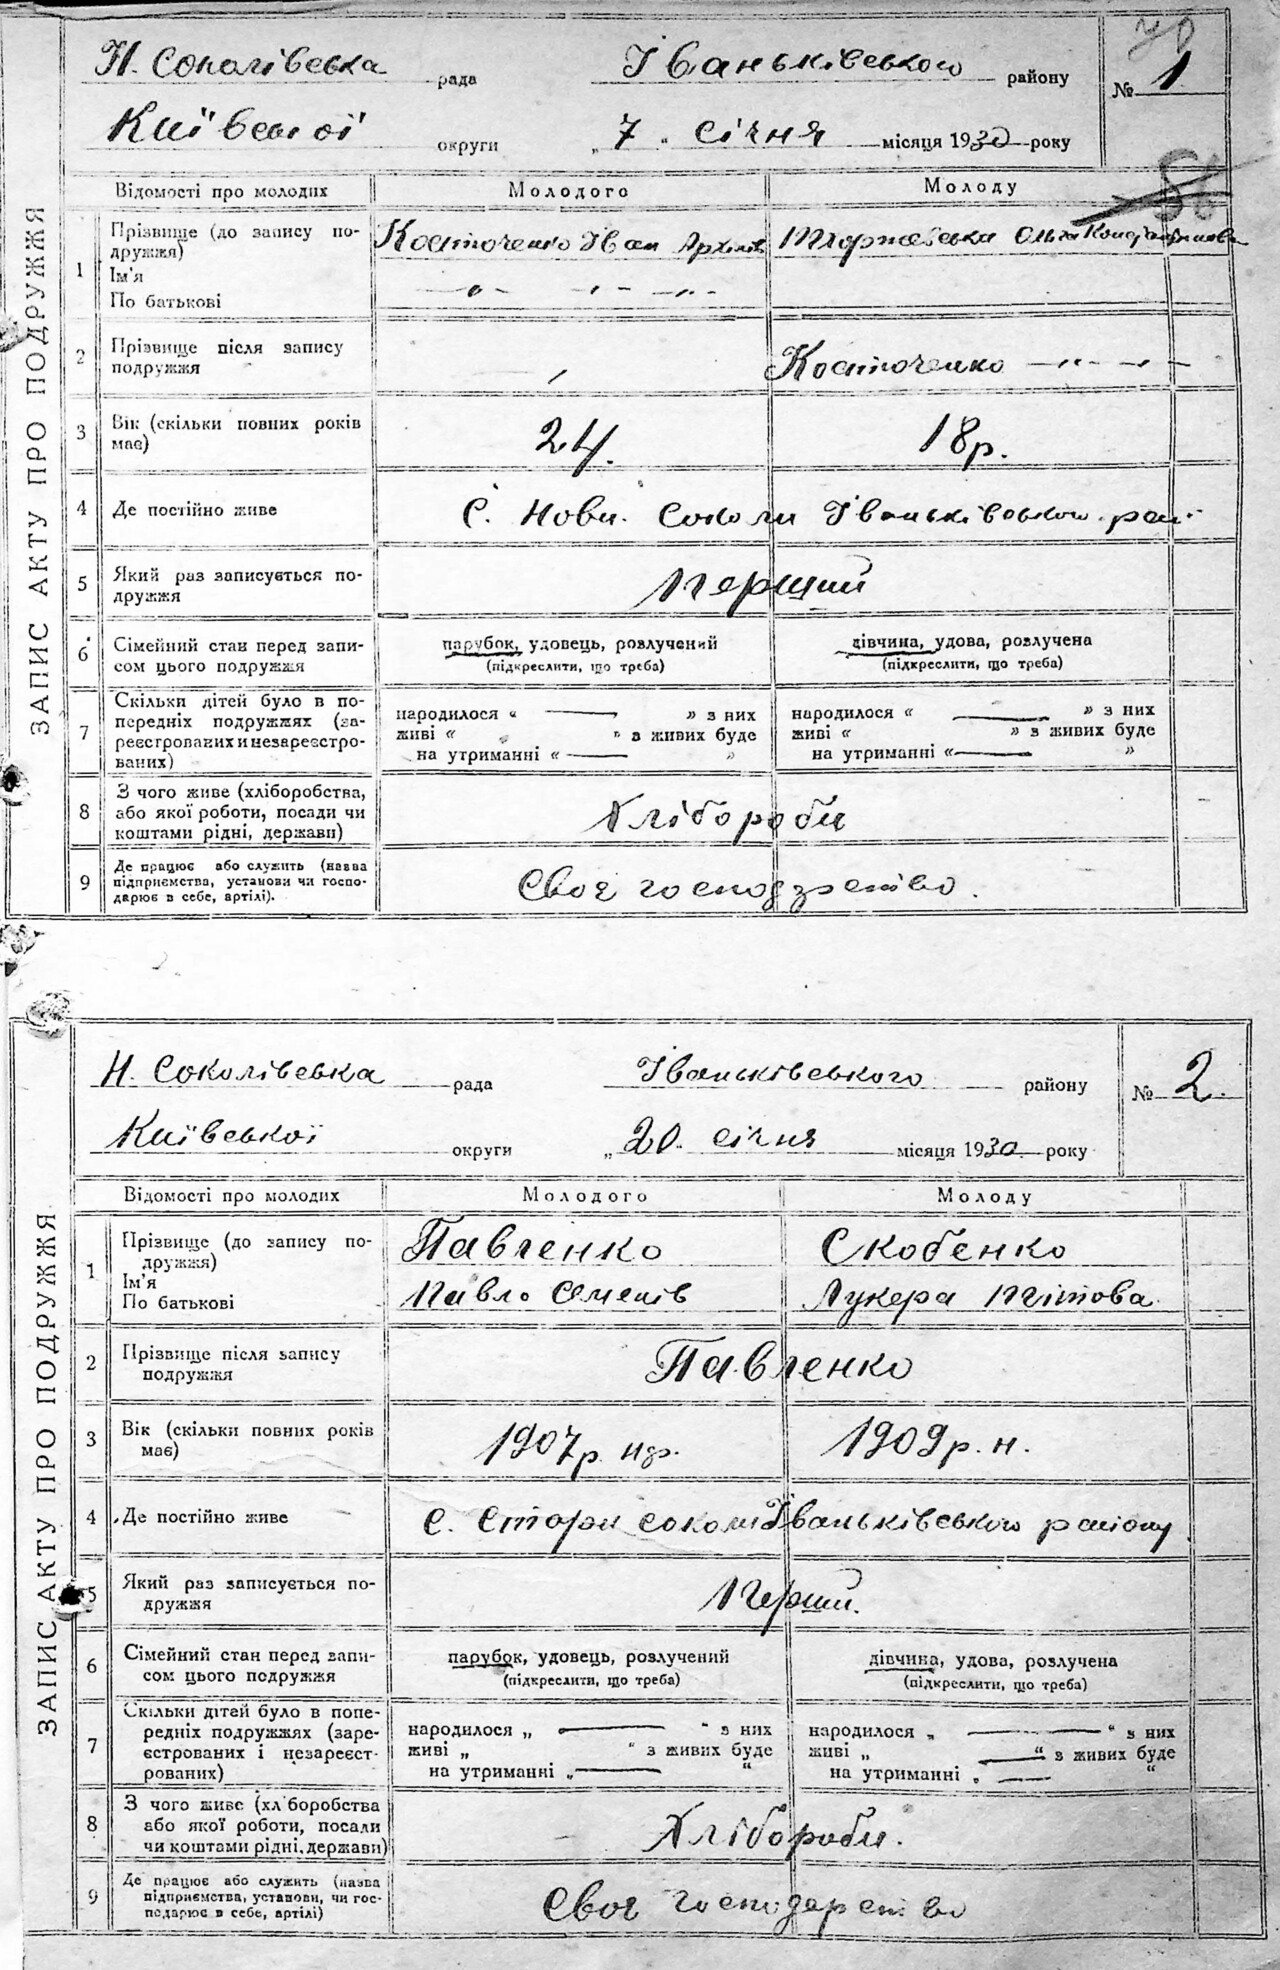 Н. Соколівська рада Іваньківського району № 1
Київської округи „ 7 „ січня місяця 1930 року
ЗАПИС АКТУ ПРО ПОДРУЖЖЯ
Відомості про молодих Молодого Молоду
1 Прізвище (до запису по-
дружжя)
Ім'я
По батькові
Костюченко Іван Архипів
Ольга
2 Прізвище після запису
подружжя
Костюченко
3 Вік (скільки повних років
має)
24. 18 р.
4 Де постійно живе с. Нові Соколи Іваньківського рай
5 Який раз записується по-
дружжя
Перший
6 Сімейний стан перед запи-
сом цього подружжя
парубок, удовець, розлучений дівчина, удова, розлучена
(підкреслити, що треба) (підкреслити, що треба)
7 Скільки дітей було в по-
передніх подружжях (за-
реєстрованих и незареєстро-
ваних)
народилося “ — ” з них народилося “ — ” з них
живі “ ” з живих буде живі “ ” з живих буде
на утриманні “ — ” на утриманні “ — ”
8 З чого живе (хліборобства,
або якої роботи, посади чи
коштами рідні, держави)
Хлібороби
9 Де працює або служить (назва
підприємства, установи чи госпо-
дарює в себе, артілі).
Своє
Н. Соколівська рада Іваньківського району № 2.
Київської округи „ 20. січня місяця 1930 року
ЗАПИС АКТУ ПРО ПОДРУЖЖЯ
Відомості про молодих Молодого Молоду
1 Прізвище (до запису по-
дружжя)
Ім'я
По батькові
Павленко Скобенко
Павло Семенів Лукера Тітова
2 Прізвище після запису
подружжя
Павленко
3 Вік (скільки повних років
має)
1907 р. 1909 р. н.
4 Де постійно живе с. Стари соколи Іваньківського району
5 Який раз записується по-
дружжя
Перший.
6 Сімейний стан перед запи-
сом цього подружжя
парубок, удовець, розлучений дівчина, удова, розлучена
(підкреслити, що треба) (підкреслити, що треба)
7 Скільки дітей було в попе-
редніх подружжях (заре-
єстрованих і незареєст-
рованих)
народилося „ — “ з них народилося „ — “ з них
живі „ “ з живих буде живі „ — “ з живих буде
на утриманні „ — “ на утриманні „ — “
8 З чого живе (хліборобства
або якої роботи, посади
чи коштами рідні, держави)
Хлібороби.
9 Де працює або служить (назва
підприємства, установи, чи гос-
подарює в себе, артілі)
Своє господарство